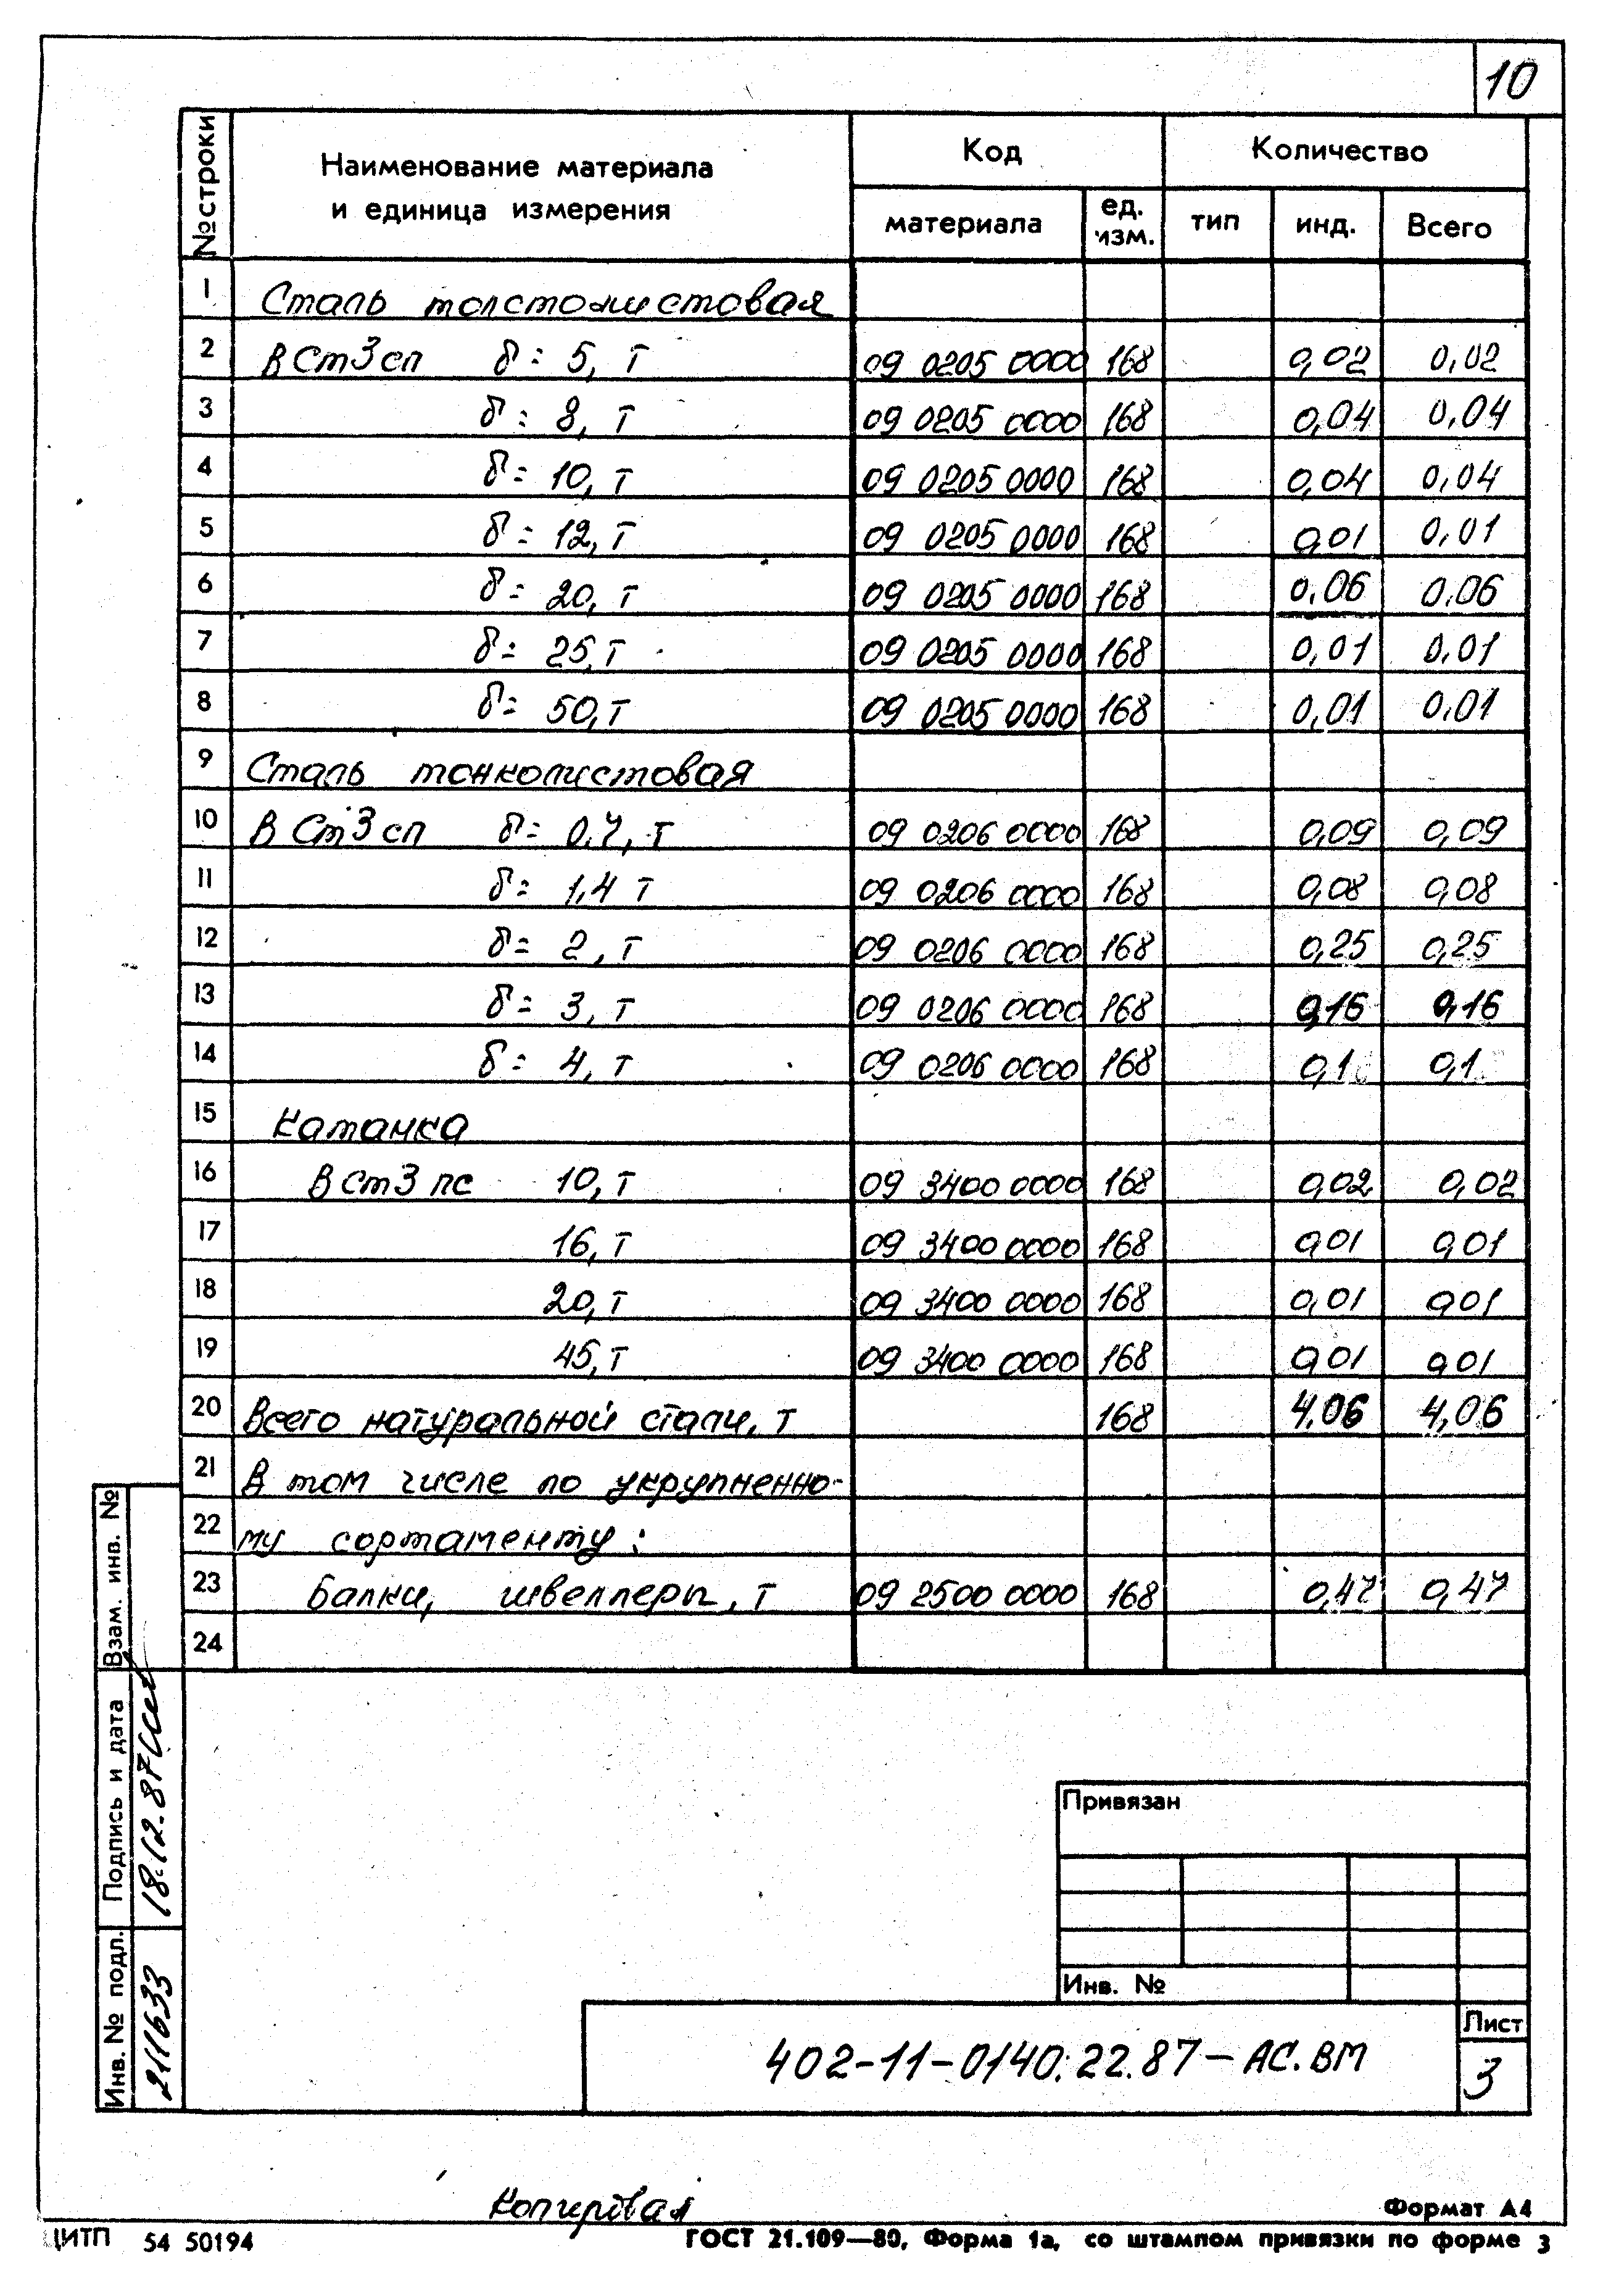 10
№ строки
Наименование материала
и единица измерения
Код
Количество
материала
ед.
изм.
тип
инд.
Всего
1 Сталь толстолистовая
2 ВСт3сп δ= 5, т 09 0205 0000 168 0,02 0,02
3 δ= 8, т 09 0205 0000 168 0,04 0,04
4 δ= 10, т 09 0205 0000 168 0,04 0,04
5 δ= 12, т 09 0205 0000 168 0,01 0,01
6 δ= 20, т 09 0205 0000 168 0,06 0,06
7 δ= 25, т 09 0205 0000 168 0,01 0,01
8 δ= 50, т 09 0205 0000 168 0,01 0,01
9 Сталь тонколистовая
10 ВСт3сп δ= 0,7, т 09 0206 0000 168 0,09 0,09
11 δ= 1,4 т 09 0206 0000 168 0,08 0,08
12 δ= 2, т 09 0206 0000 168 0,25 0,25
13 δ= 3, т 09 0206 0000 168 0,16 0,16
14 δ= 4, т 09 0206 0000 168 0,1 0,1
15 Катанка
16 ВСт3пс 10, т 09 3400 0000 168 0,02 0,02
17 16, т 09 3400 0000 168 0,01 0,01
18 20, т 09 3400 0000 168 0,01 0,01
19 45, т 09 3400 0000 168 0,01 0,01
20 Всего натуральной стали, т 168 4,06 4,06
21 В том числе по укрупненно-
22 му сортаменту:
23 Балки, швеллеры, т 09 2500 0000 168 0,47 0,47
24
Взам. инв. №
Подпись и дата
18.12.87
Инв. № подл.
211633
Привязан
Инв. №
402-11-0140.22.87-АС.ВМ
Лист
3
Копировал
Формат А4
ЦИТП 54 50194
ГОСТ 21.109—80, Форма 1а, со штампом привязки по форме 3